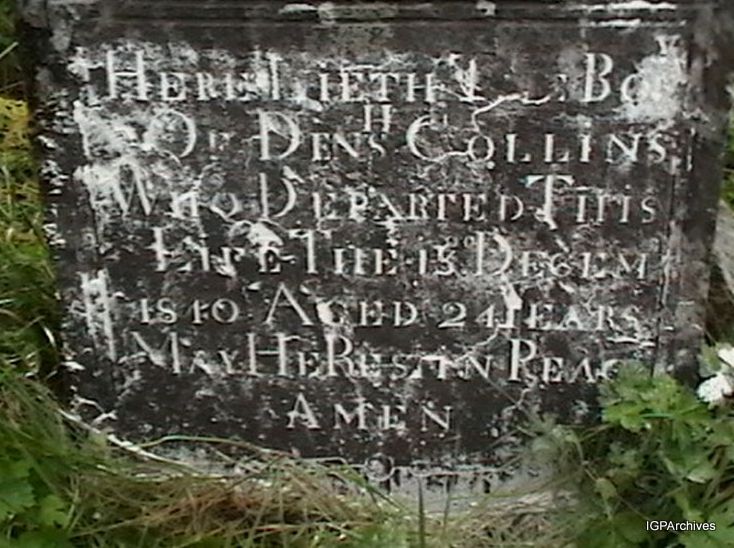 HERE LIETH T BO
OF DENS COLLINS
WHO DEPARTED THIS
LIFE THE 15 DECEM
1810 AGED 24 YEARS
MAY HE REST IN PEAC
AMEN
IGPArchives